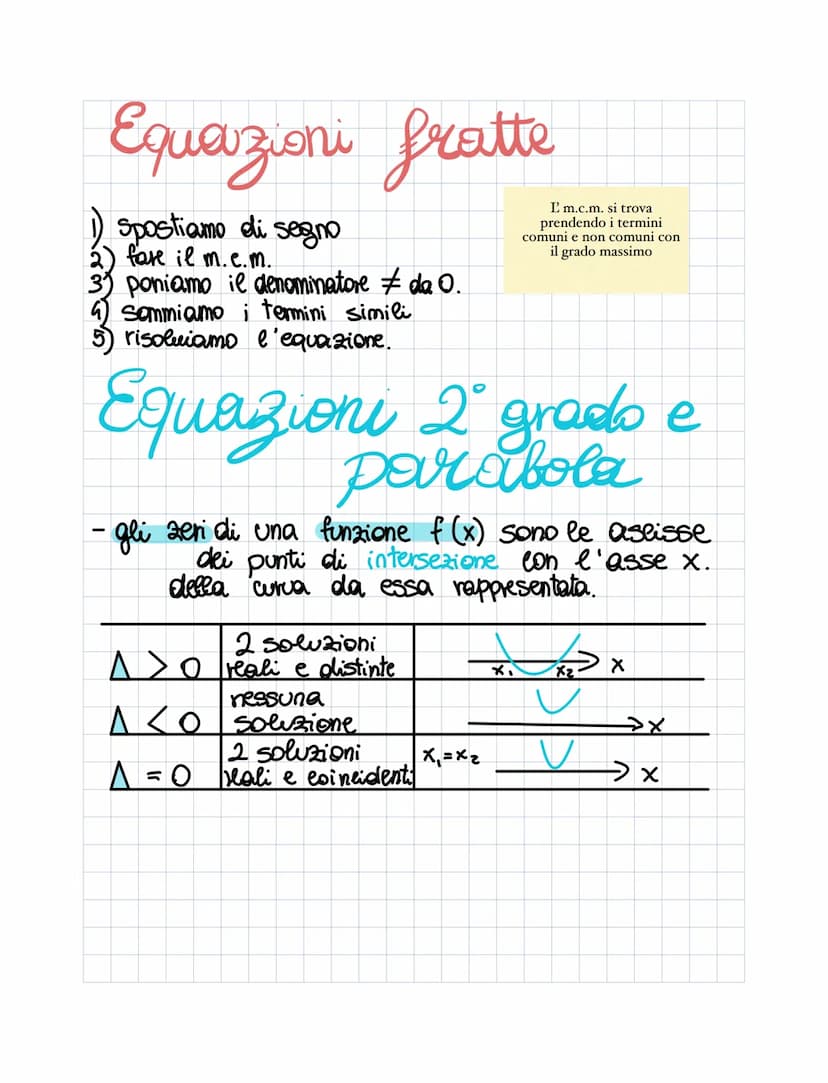 Equazioni fratte
L' m.c.m. si trova
prendendo i termini
comuni e non comuni con
il grado massimo
1) spostiamo di segno
2) fare il m.c.m.
3) poniamo il denominatore ≠ da 0.
4) sommiamo i termini simili
5) risolviamo l'equazione.
Equazioni 2° grado e
parabola
- gli zeri di una funzione f(x) sono le ascisse
dei punti di intersezione con l'asse x.
della curva da essa rappresentata.
Δ > 0 2 soluzioni
reali e distinte x₁ x₂ x
Δ < 0 nessuna
soluzione x
Δ = 0 2 soluzioni
reali e coincidenti x₁=x₂ x